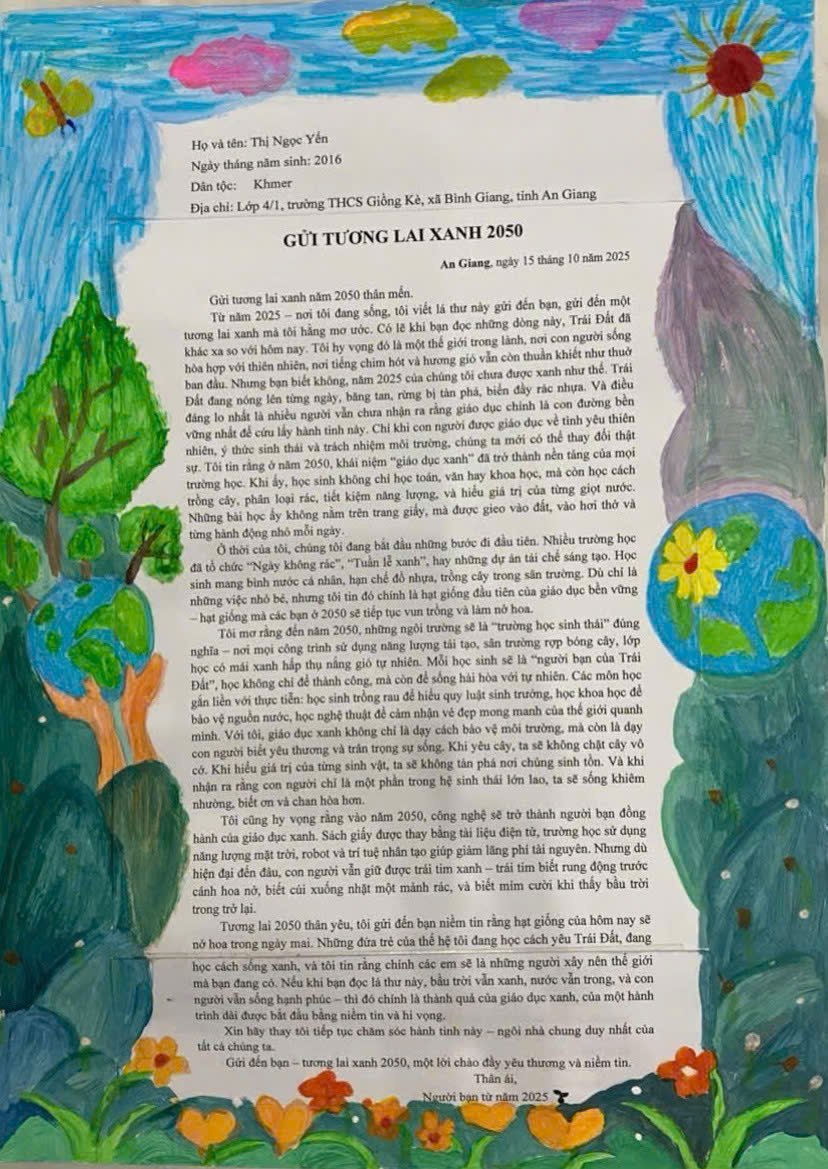 Họ và tên: Thị Ngọc Yến
Ngày tháng năm sinh: 2016
Dân tộc: Khmer
Địa chỉ: Lớp 4/1, trường THCS Giồng Kè, xã Bình Giang, tỉnh An Giang
GỬI TƯƠNG LAI XANH 2050
An Giang, ngày 15 tháng 10 năm 2025
Gửi tương lai xanh năm 2050 thân mến.
Từ năm 2025 – nơi tôi đang sống, tôi viết lá thư này gửi đến bạn, gửi đến một
tương lai xanh mà tôi hằng mơ ước. Có lẽ khi bạn đọc những dòng này, Trái Đất đã
khác xa so với hôm nay. Tôi hy vọng đó là một thế giới trong lành, nơi con người sống
hòa hợp với thiên nhiên, nơi tiếng chim hót và hương gió vẫn còn thuần khiết như thuở
ban đầu. Nhưng bạn biết không, năm 2025 của chúng tôi chưa được xanh như thế. Trái
Đất đang nóng lên từng ngày, băng tan, rừng bị tàn phá, biển đầy rác nhựa. Và điều
đáng lo nhất là nhiều người vẫn chưa nhận ra rằng giáo dục chính là con đường bền
vững nhất để cứu lấy hành tinh này. Chỉ khi con người được giáo dục về tình yêu thiên
nhiên, ý thức sinh thái và trách nhiệm môi trường, chúng ta mới có thể thay đổi thật
sự. Tôi tin rằng ở năm 2050, khái niệm “giáo dục xanh” đã trở thành nền tảng của mọi
trường học. Khi ấy, học sinh không chỉ học toán, văn hay khoa học, mà còn học cách
trồng cây, phân loại rác, tiết kiệm năng lượng, và hiểu giá trị của từng giọt nước.
Những bài học ấy không nằm trên trang giấy, mà được gieo vào đất, vào hơi thở và
từng hành động nhỏ mỗi ngày.
Ở thời của tôi, chúng tôi đang bắt đầu những bước đi đầu tiên. Nhiều trường học
đã tổ chức “Ngày không rác”, “Tuần lễ xanh”, hay những dự án tái chế sáng tạo. Học
sinh mang bình nước cá nhân, hạn chế đồ nhựa, trồng cây trong sân trường. Dù chỉ là
những việc nhỏ bé, nhưng tôi tin đó chính là hạt giống đầu tiên của giáo dục bền vững
– hạt giống mà các bạn ở 2050 sẽ tiếp tục vun trồng và làm nở hoa.
Tôi mơ rằng đến năm 2050, những ngôi trường sẽ là “trường học sinh thái” đúng
nghĩa – nơi mọi công trình sử dụng năng lượng tái tạo, sân trường rợp bóng cây, lớp
học có mái xanh hấp thụ nắng gió tự nhiên. Mỗi học sinh sẽ là “người bạn của Trái
Đất”, học không chỉ để thành công, mà còn để sống hài hòa với tự nhiên. Các môn học
gắn liền với thực tiễn: học sinh trồng rau để hiểu quy luật sinh trưởng, học khoa học để
bảo vệ nguồn nước, học nghệ thuật để cảm nhận vẻ đẹp mong manh của thế giới quanh
mình. Với tôi, giáo dục xanh không chỉ là dạy cách bảo vệ môi trường, mà còn là dạy
con người biết yêu thương và trân trọng sự sống. Khi yêu cây, ta sẽ không chặt cây vô
cớ. Khi hiểu giá trị của từng sinh vật, ta sẽ không tàn phá nơi chúng sinh tồn. Và khi
nhận ra rằng con người chỉ là một phần trong hệ sinh thái lớn lao, ta sẽ sống khiêm
nhường, biết ơn và chan hòa hơn.
Tôi cũng hy vọng rằng vào năm 2050, công nghệ sẽ trở thành người bạn đồng
hành của giáo dục xanh. Sách giấy được thay bằng tài liệu điện tử, trường học sử dụng
năng lượng mặt trời, robot và trí tuệ nhân tạo giúp giảm lãng phí tài nguyên. Nhưng dù
hiện đại đến đâu, con người vẫn giữ được trái tim xanh – trái tim biết rung động trước
cánh hoa nở, biết cúi xuống nhặt một mảnh rác, và biết mỉm cười khi thấy bầu trời
trong trở lại.
Tương lai 2050 thân yêu, tôi gửi đến bạn niềm tin rằng hạt giống của hôm nay sẽ
nở hoa trong ngày mai. Những đứa trẻ của thế hệ tôi đang học cách yêu Trái Đất, đang
học cách sống xanh, và tôi tin rằng chính các em sẽ là những người xây nên thế giới
mà bạn đang có. Nếu khi bạn đọc lá thư này, bầu trời vẫn xanh, nước vẫn trong, và con
người vẫn sống hạnh phúc – thì đó chính là thành quả của giáo dục xanh, của một hành
trình dài được bắt đầu bằng niềm tin và hi vọng.
Xin hãy thay tôi tiếp tục chăm sóc hành tinh này – ngôi nhà chung duy nhất của
tất cả chúng ta.
Gửi đến bạn – tương lai xanh 2050, một lời chào đầy yêu thương và niềm tin.
Thân ái,
Người bạn từ năm 2025